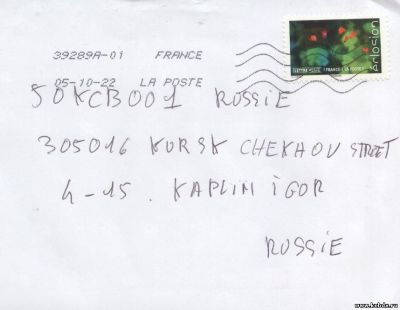 39289A-01 FRANCE
05-10-22 LA POSTE
SOKCB001 RUSSIE
305016 KURSK CHEKHOV STREET
4-15. KAPLIN IGOR
RUSSIE
Éclosion
LETTRE VERTE FRANCE LA POSTE
www.kabda.ru